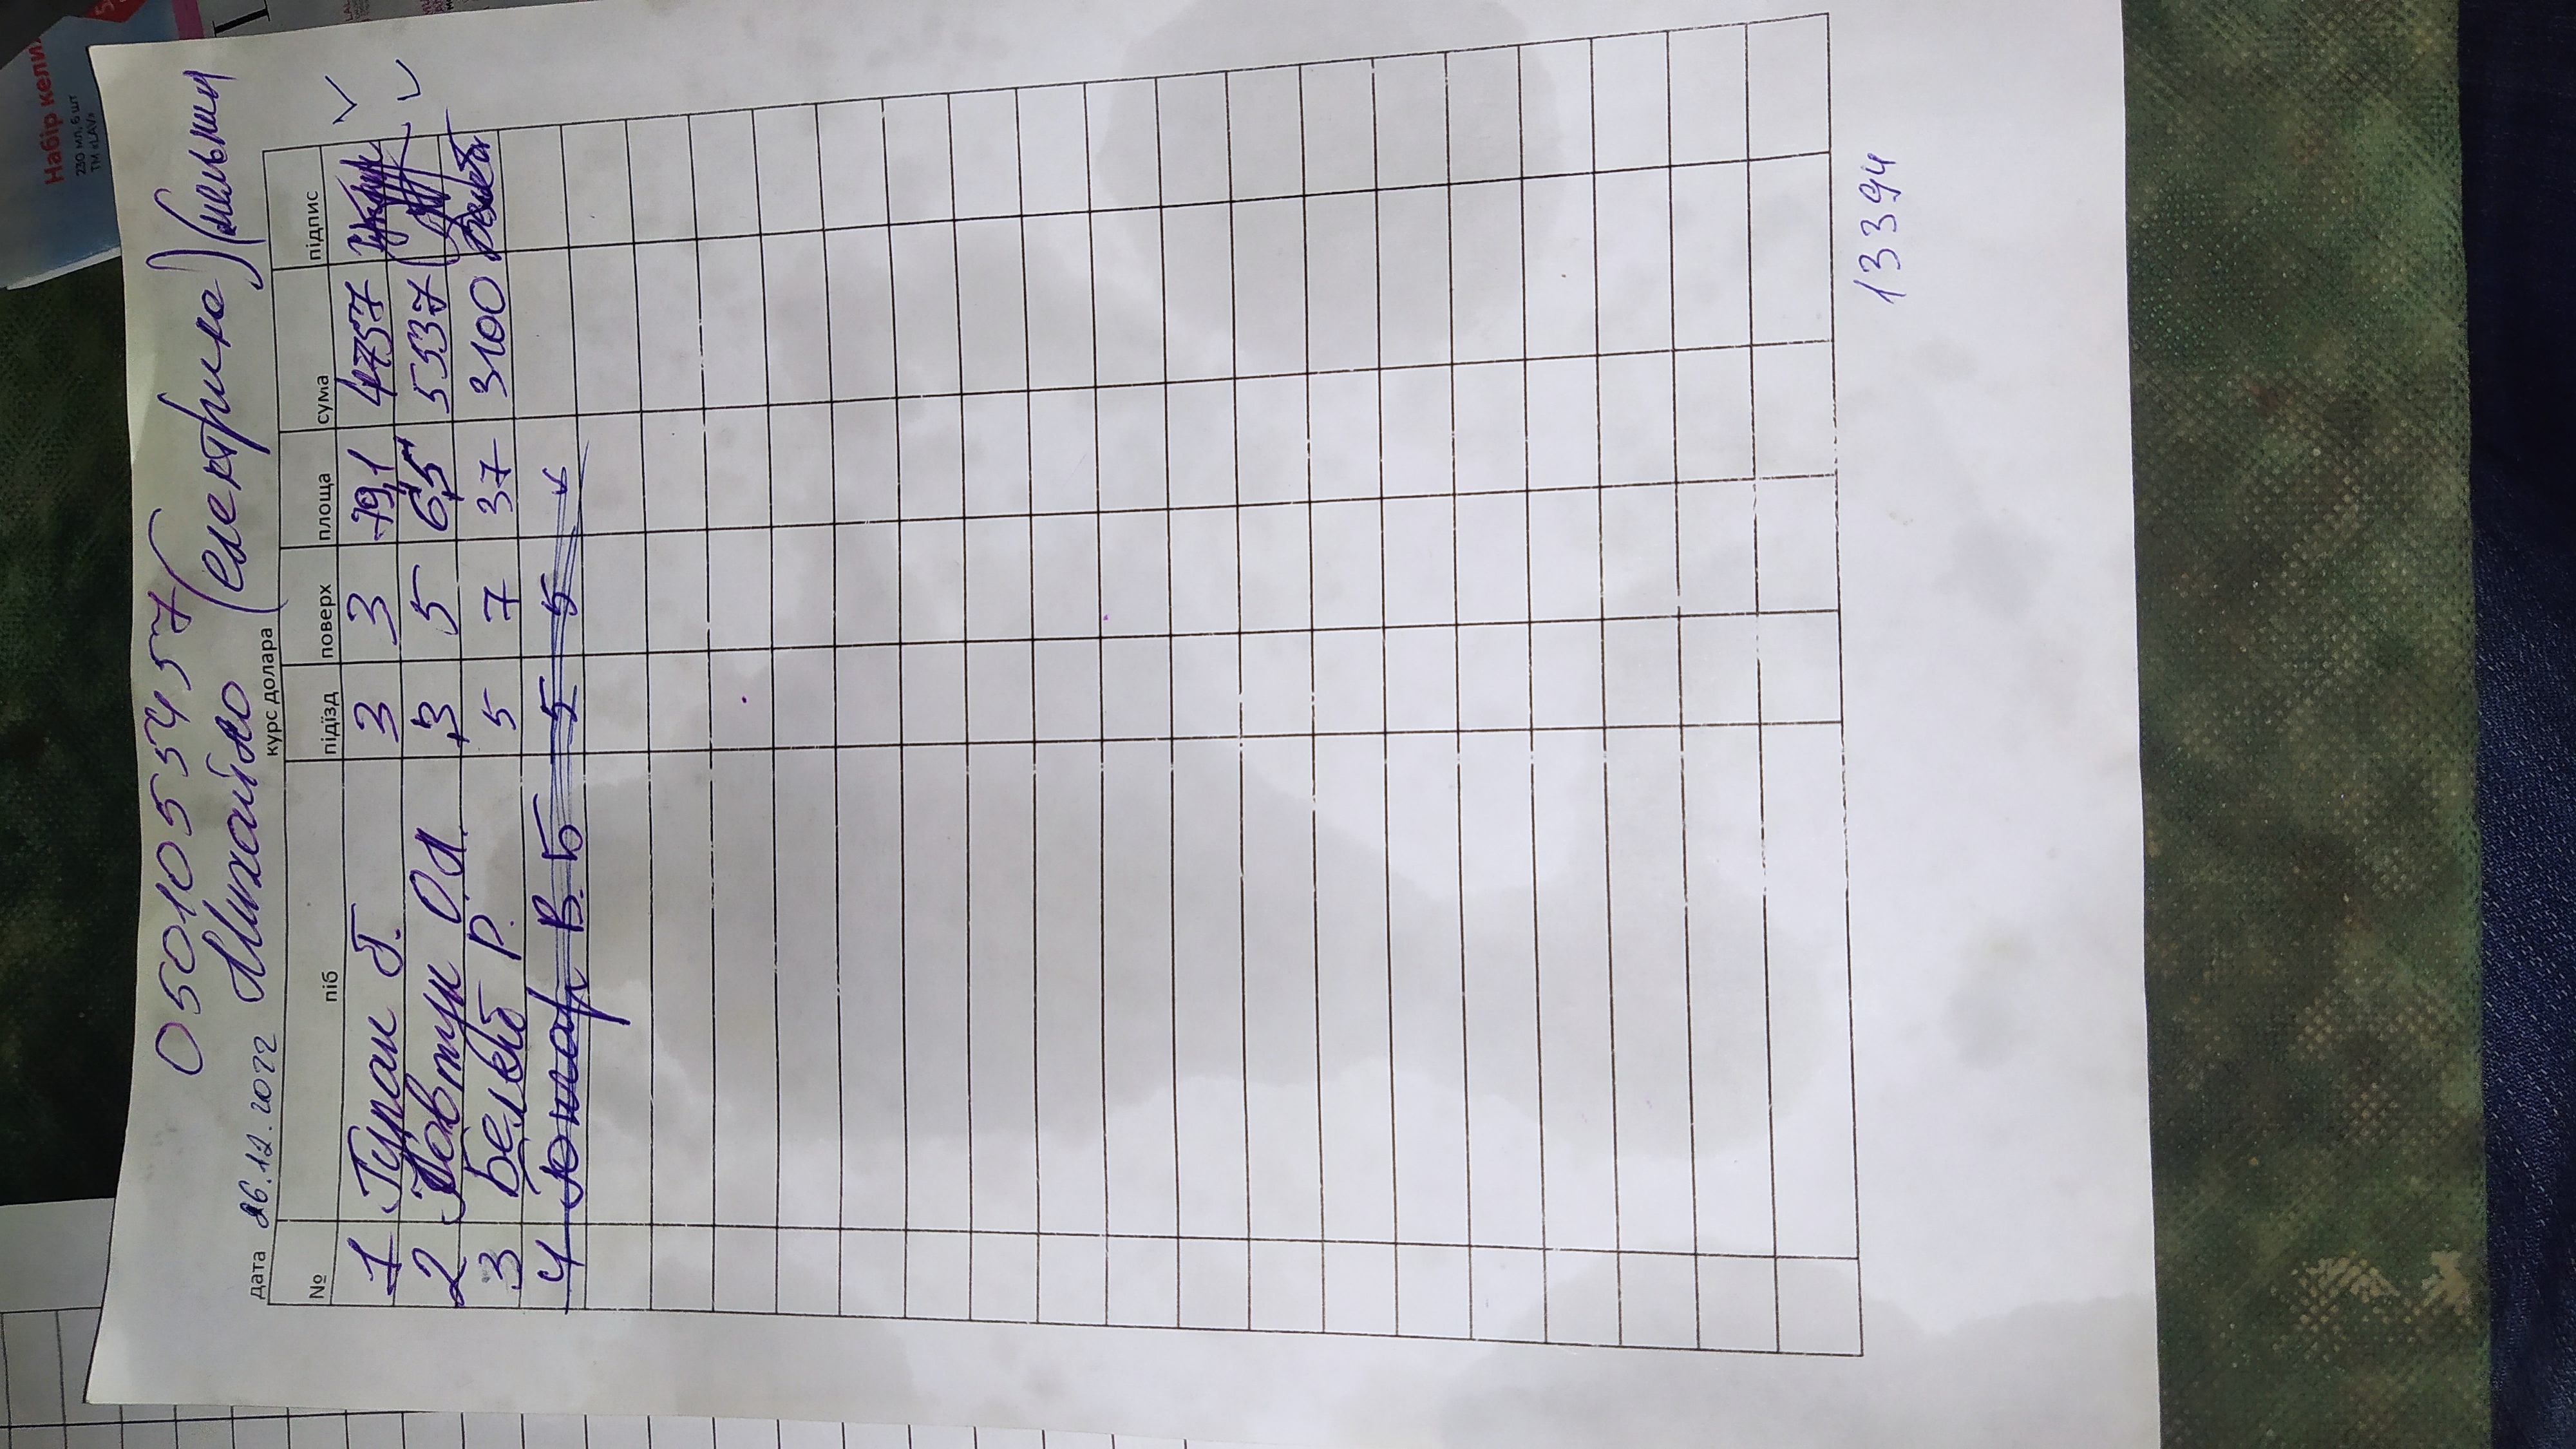 Набір кели
230 мл, 6 шт
ТМ «LAV»
0501055457
Михайло (електрика)
дата 26.12.2022 курс долара
№ піб підїзд поверх площа сума підпис
1 Гурак Г. 3 3 79,1 4757
2 Ковтун О.Л. 3 5 65 5537
3 Белей Р. 5 7 37 3100
4 В. Б 5 5
13394